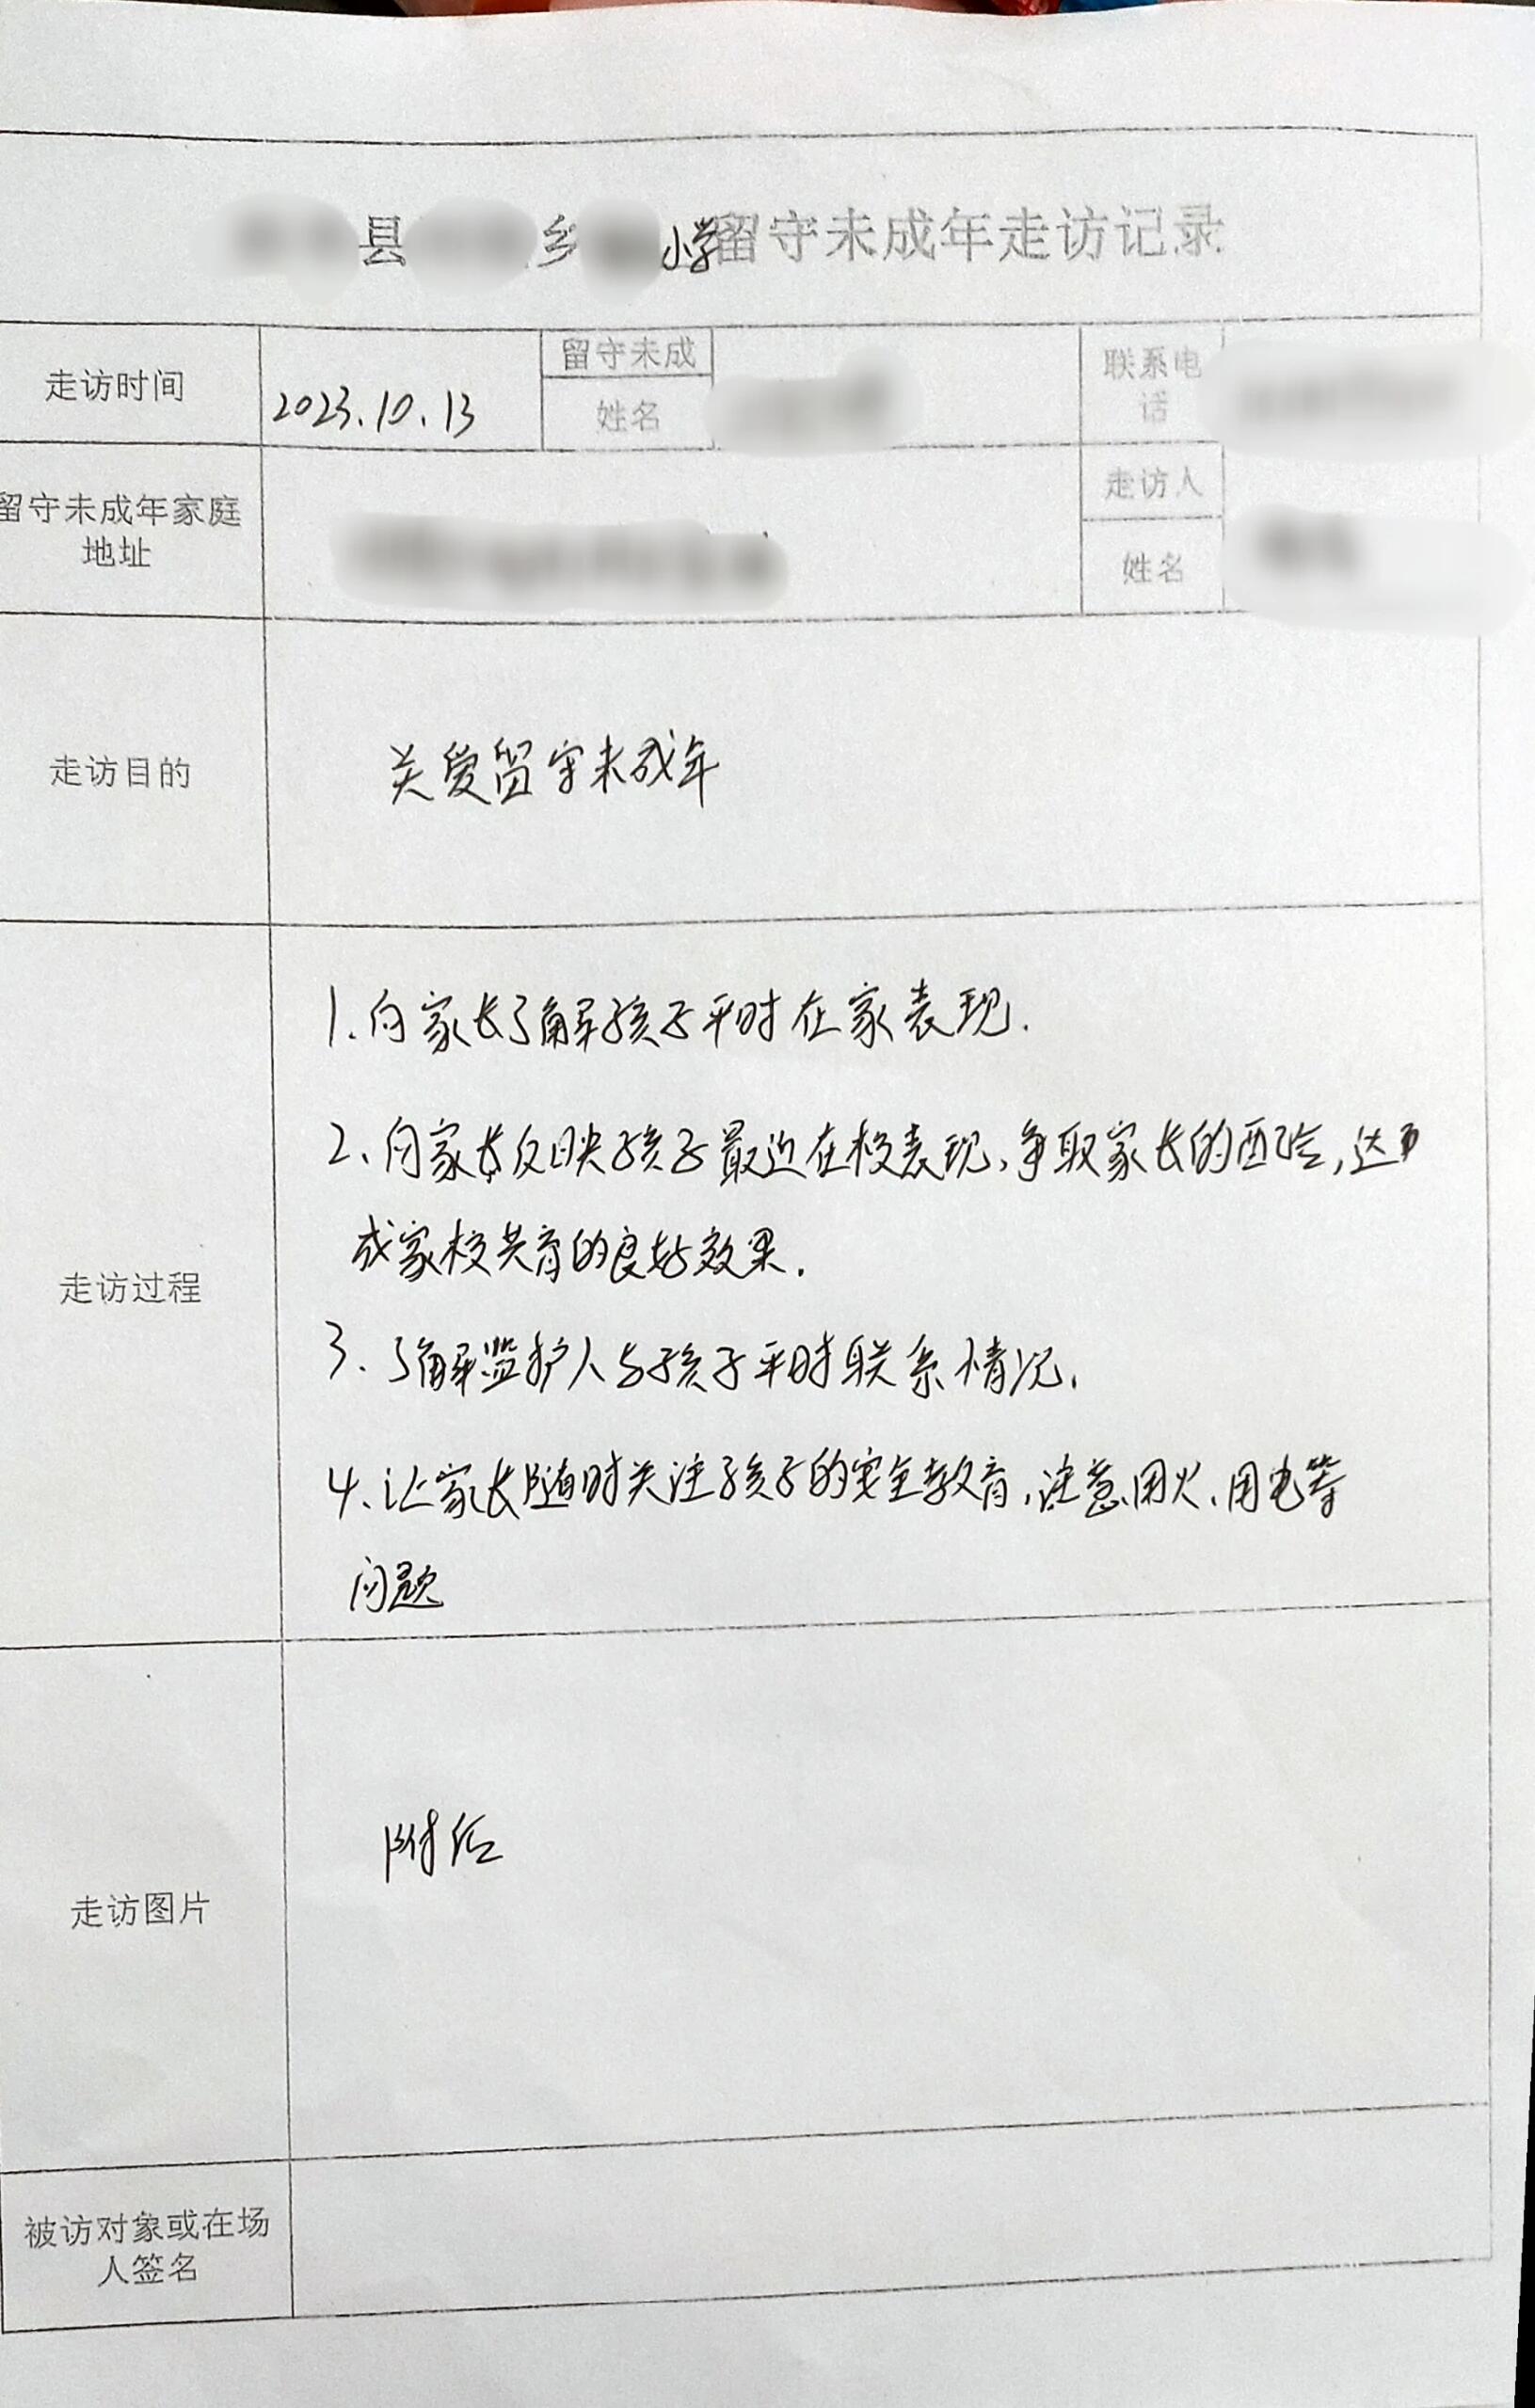 县 乡 小学留守未成年走访记录
走访时间
2023.10.13
留守未成
姓名
联系电
话
留守未成年家庭
地址
走访人
姓名
走访目的
关爱留守未成年
走访过程
1.向家长了解孩子平时在家表现.
2、向家长反映孩子最近在校表现,争取家长的配合,达
成家校共育的良好效果.
3.了解监护人与孩子平时联系情况.
4、让家长随时关注孩子的安全教育,注意用火、用电等
问题
走访图片
附后
被访对象或在场
人签名